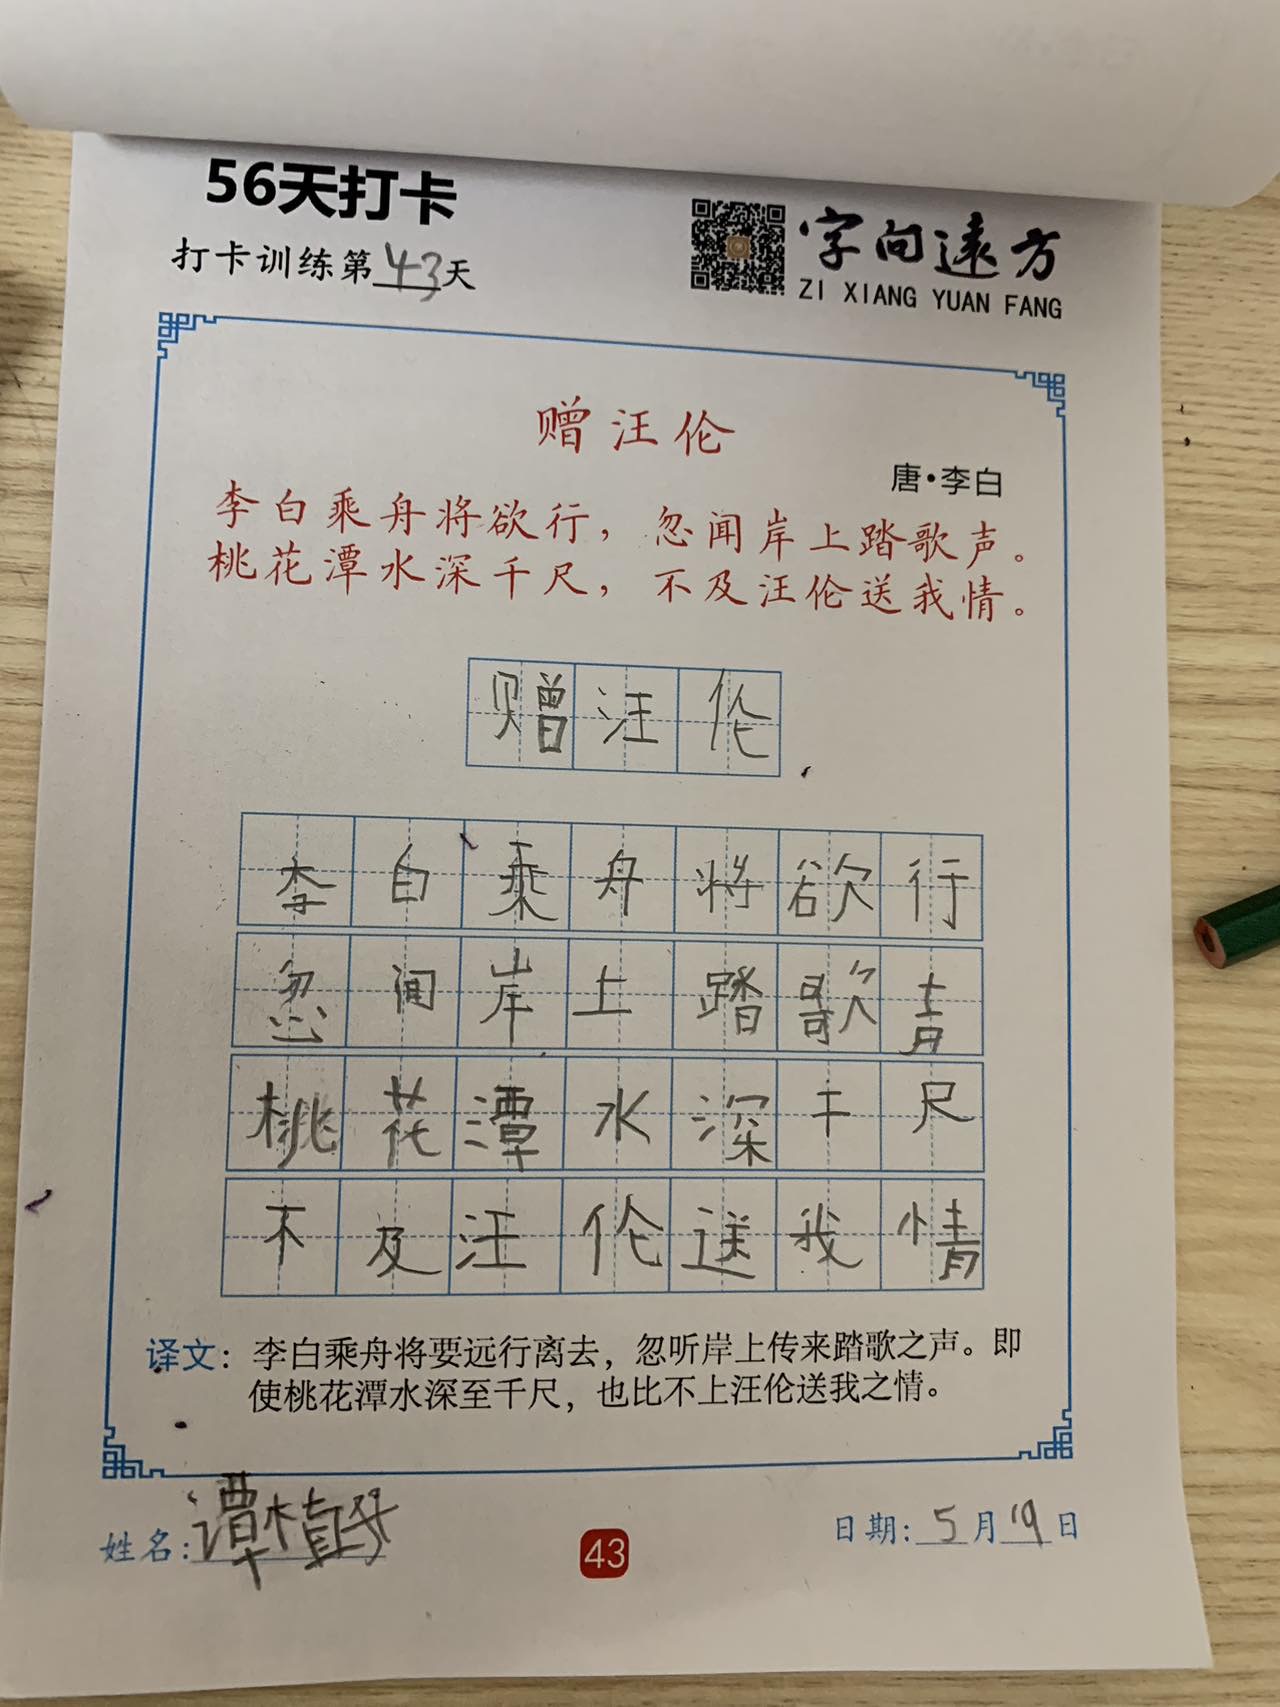 56天打卡
打卡训练第43天
字向远方
ZI XIANG YUAN FANG
赠汪伦
唐·李白
李白乘舟将欲行，忽闻岸上踏歌声。
桃花潭水深千尺，不及汪伦送我情。
赠汪伦
李白乘舟将欲行
忽闻岸土踏歌青
桃花潭水深干尺
不及汪伦送我情
译文：李白乘舟将要远行离去，忽听岸上传来踏歌之声。即
使桃花潭水深至千尺，也比不上汪伦送我之情。
姓名：谭植
43
日期：5月19日